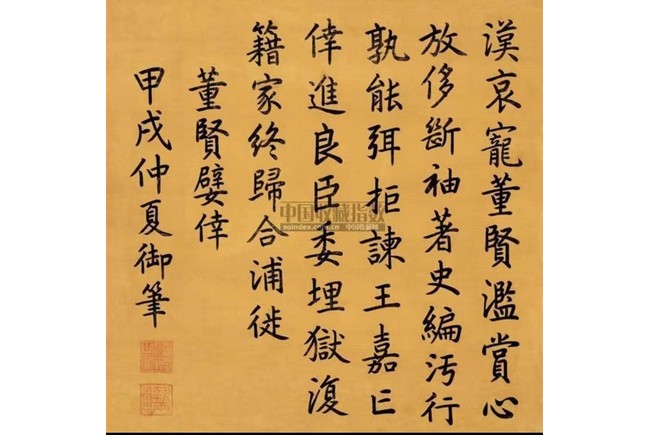 漢哀寵董賢濫賞心
放侈斷袖著史編汚行
孰能弭拒諫王嘉亡
倖進良臣委埋獄復
籍家終歸合浦徙
董賢嬖倖
甲戌仲夏御筆
中国收藏指数